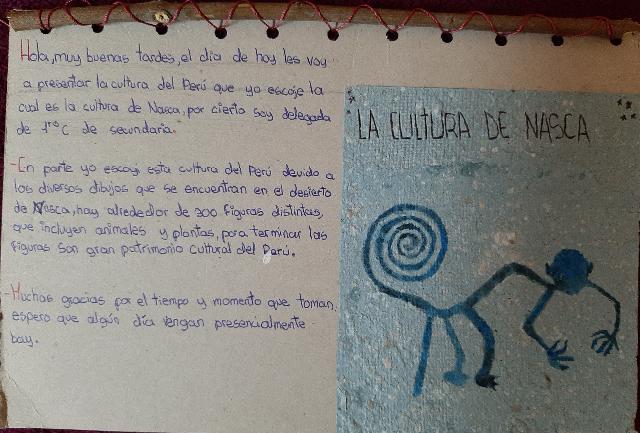 Hola, muy buenas tardes, el día de hoy les voy
a presentar la cultura del Perú que yo escoje la
cual es la cultura de Nasca, por cierto soy delegada
de 1°C de secundaria.
-En parte yo escoy esta cultura del Perú devido a
los diversos dibujos que se encuentran en el desierto
de Nasca, hay alrededor de 300 figuras distintas,
que incluyen animales y plantas, para terminar las
figuras son gran patrimonio cultural del Perú.
-Muchas gracias por el tiempo y momento que toman,
espero que algún día vengan presencialmente
bay.
LA CULTURA DE NASCA